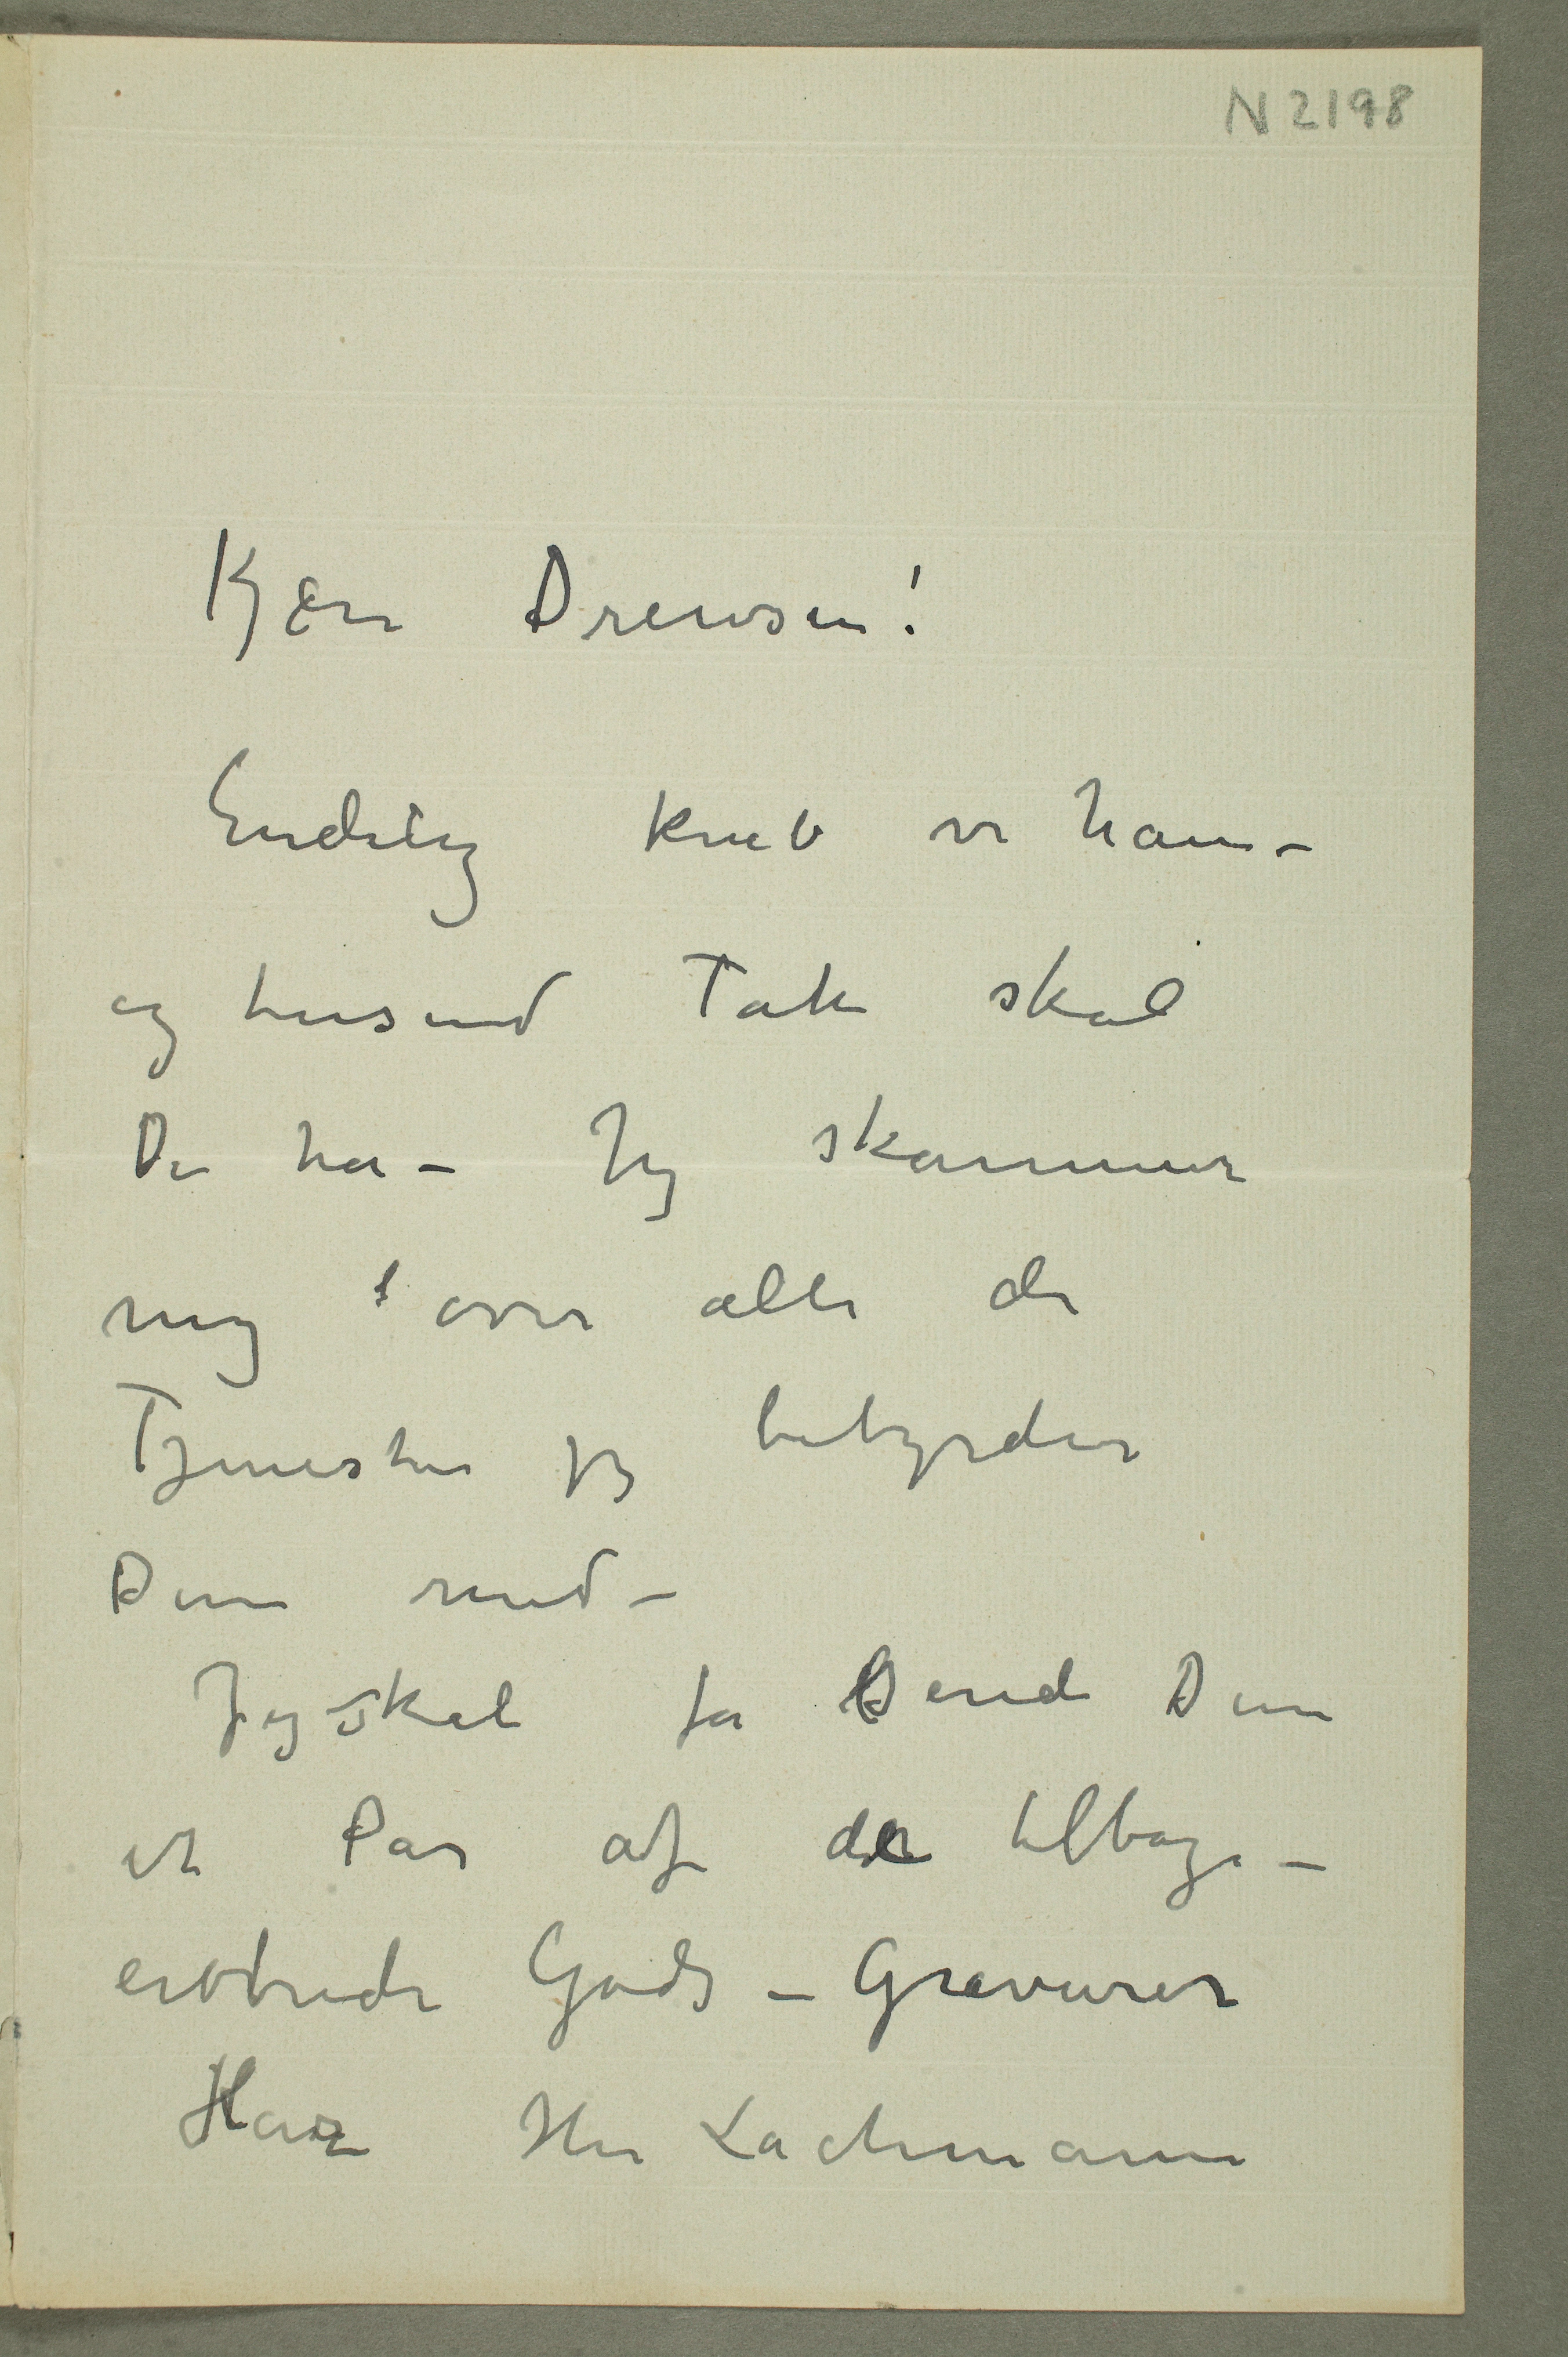 N 2198
Kjære Drewsen!
Endelig kneb vi ham –
og tusend Tak skal
De ha – Jeg skammer
mig over alle de
Tjenester jeg bebyrder
Dem med –
Jeg skal få sende Dem
et Par af de tilbage-
erobrede Gods – Gravurer
Har Her Lachmann